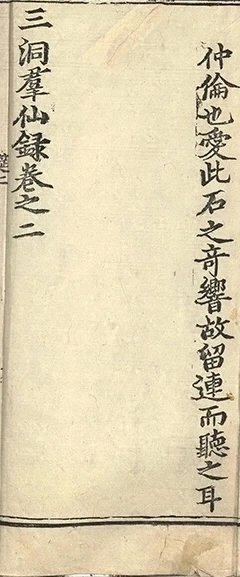 仲倫也愛此石之奇響故留連而聽之耳
三洞羣仙録卷之二